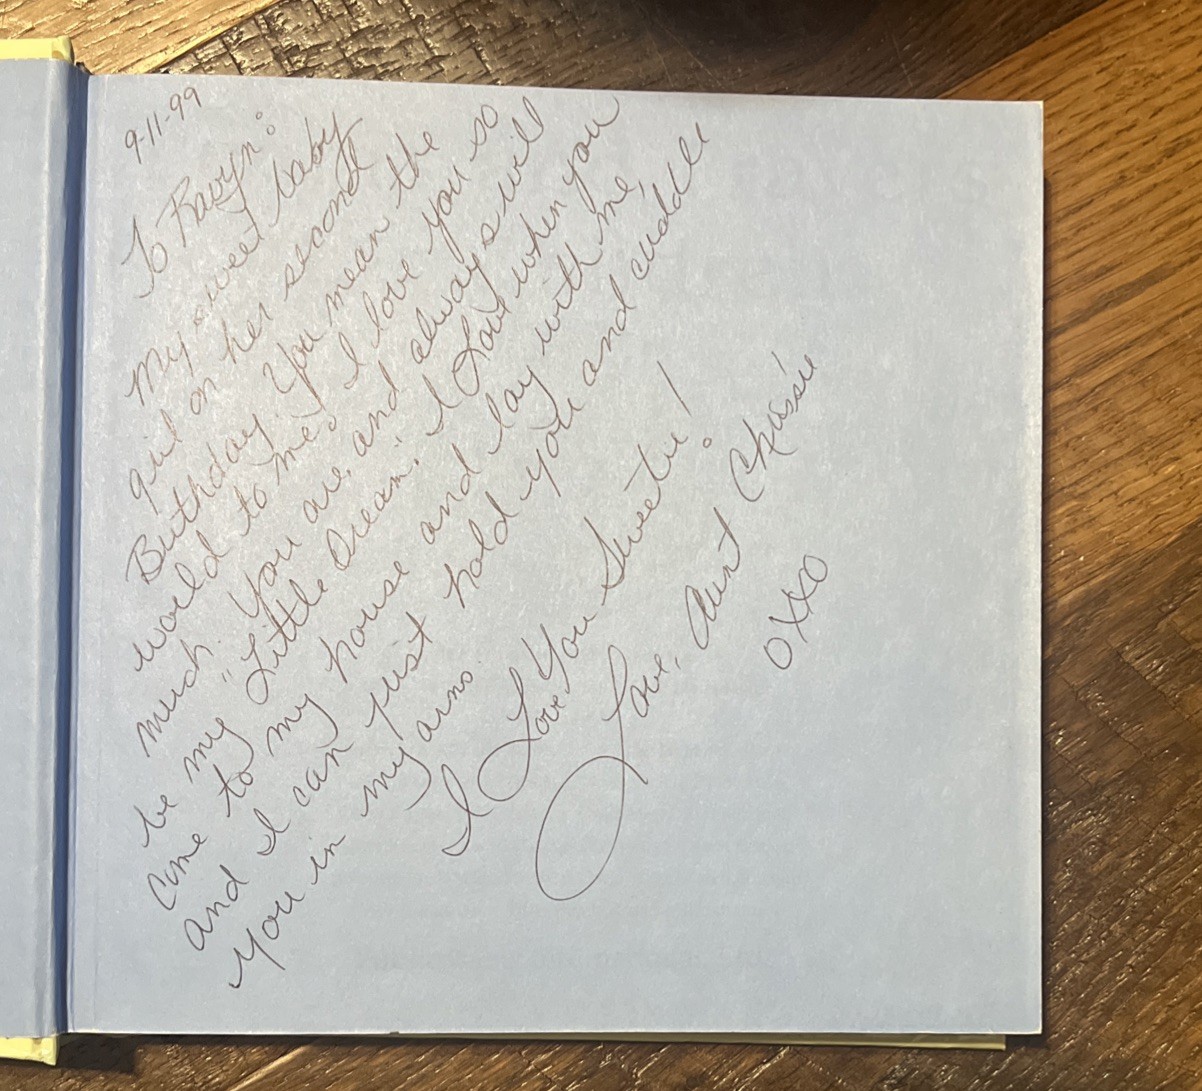 9-11-99
To Ravyn:
My sweet baby
girl on her second
Birthday. You mean the
world to me. I love you so
much. You are, and always will
be my "Little Dream". I Love when you
come to my house and lay with me,
and I can just hold you and cuddle
you in my arms
I Love You Sweetie!
Love, Aunt Chassie
OXXO